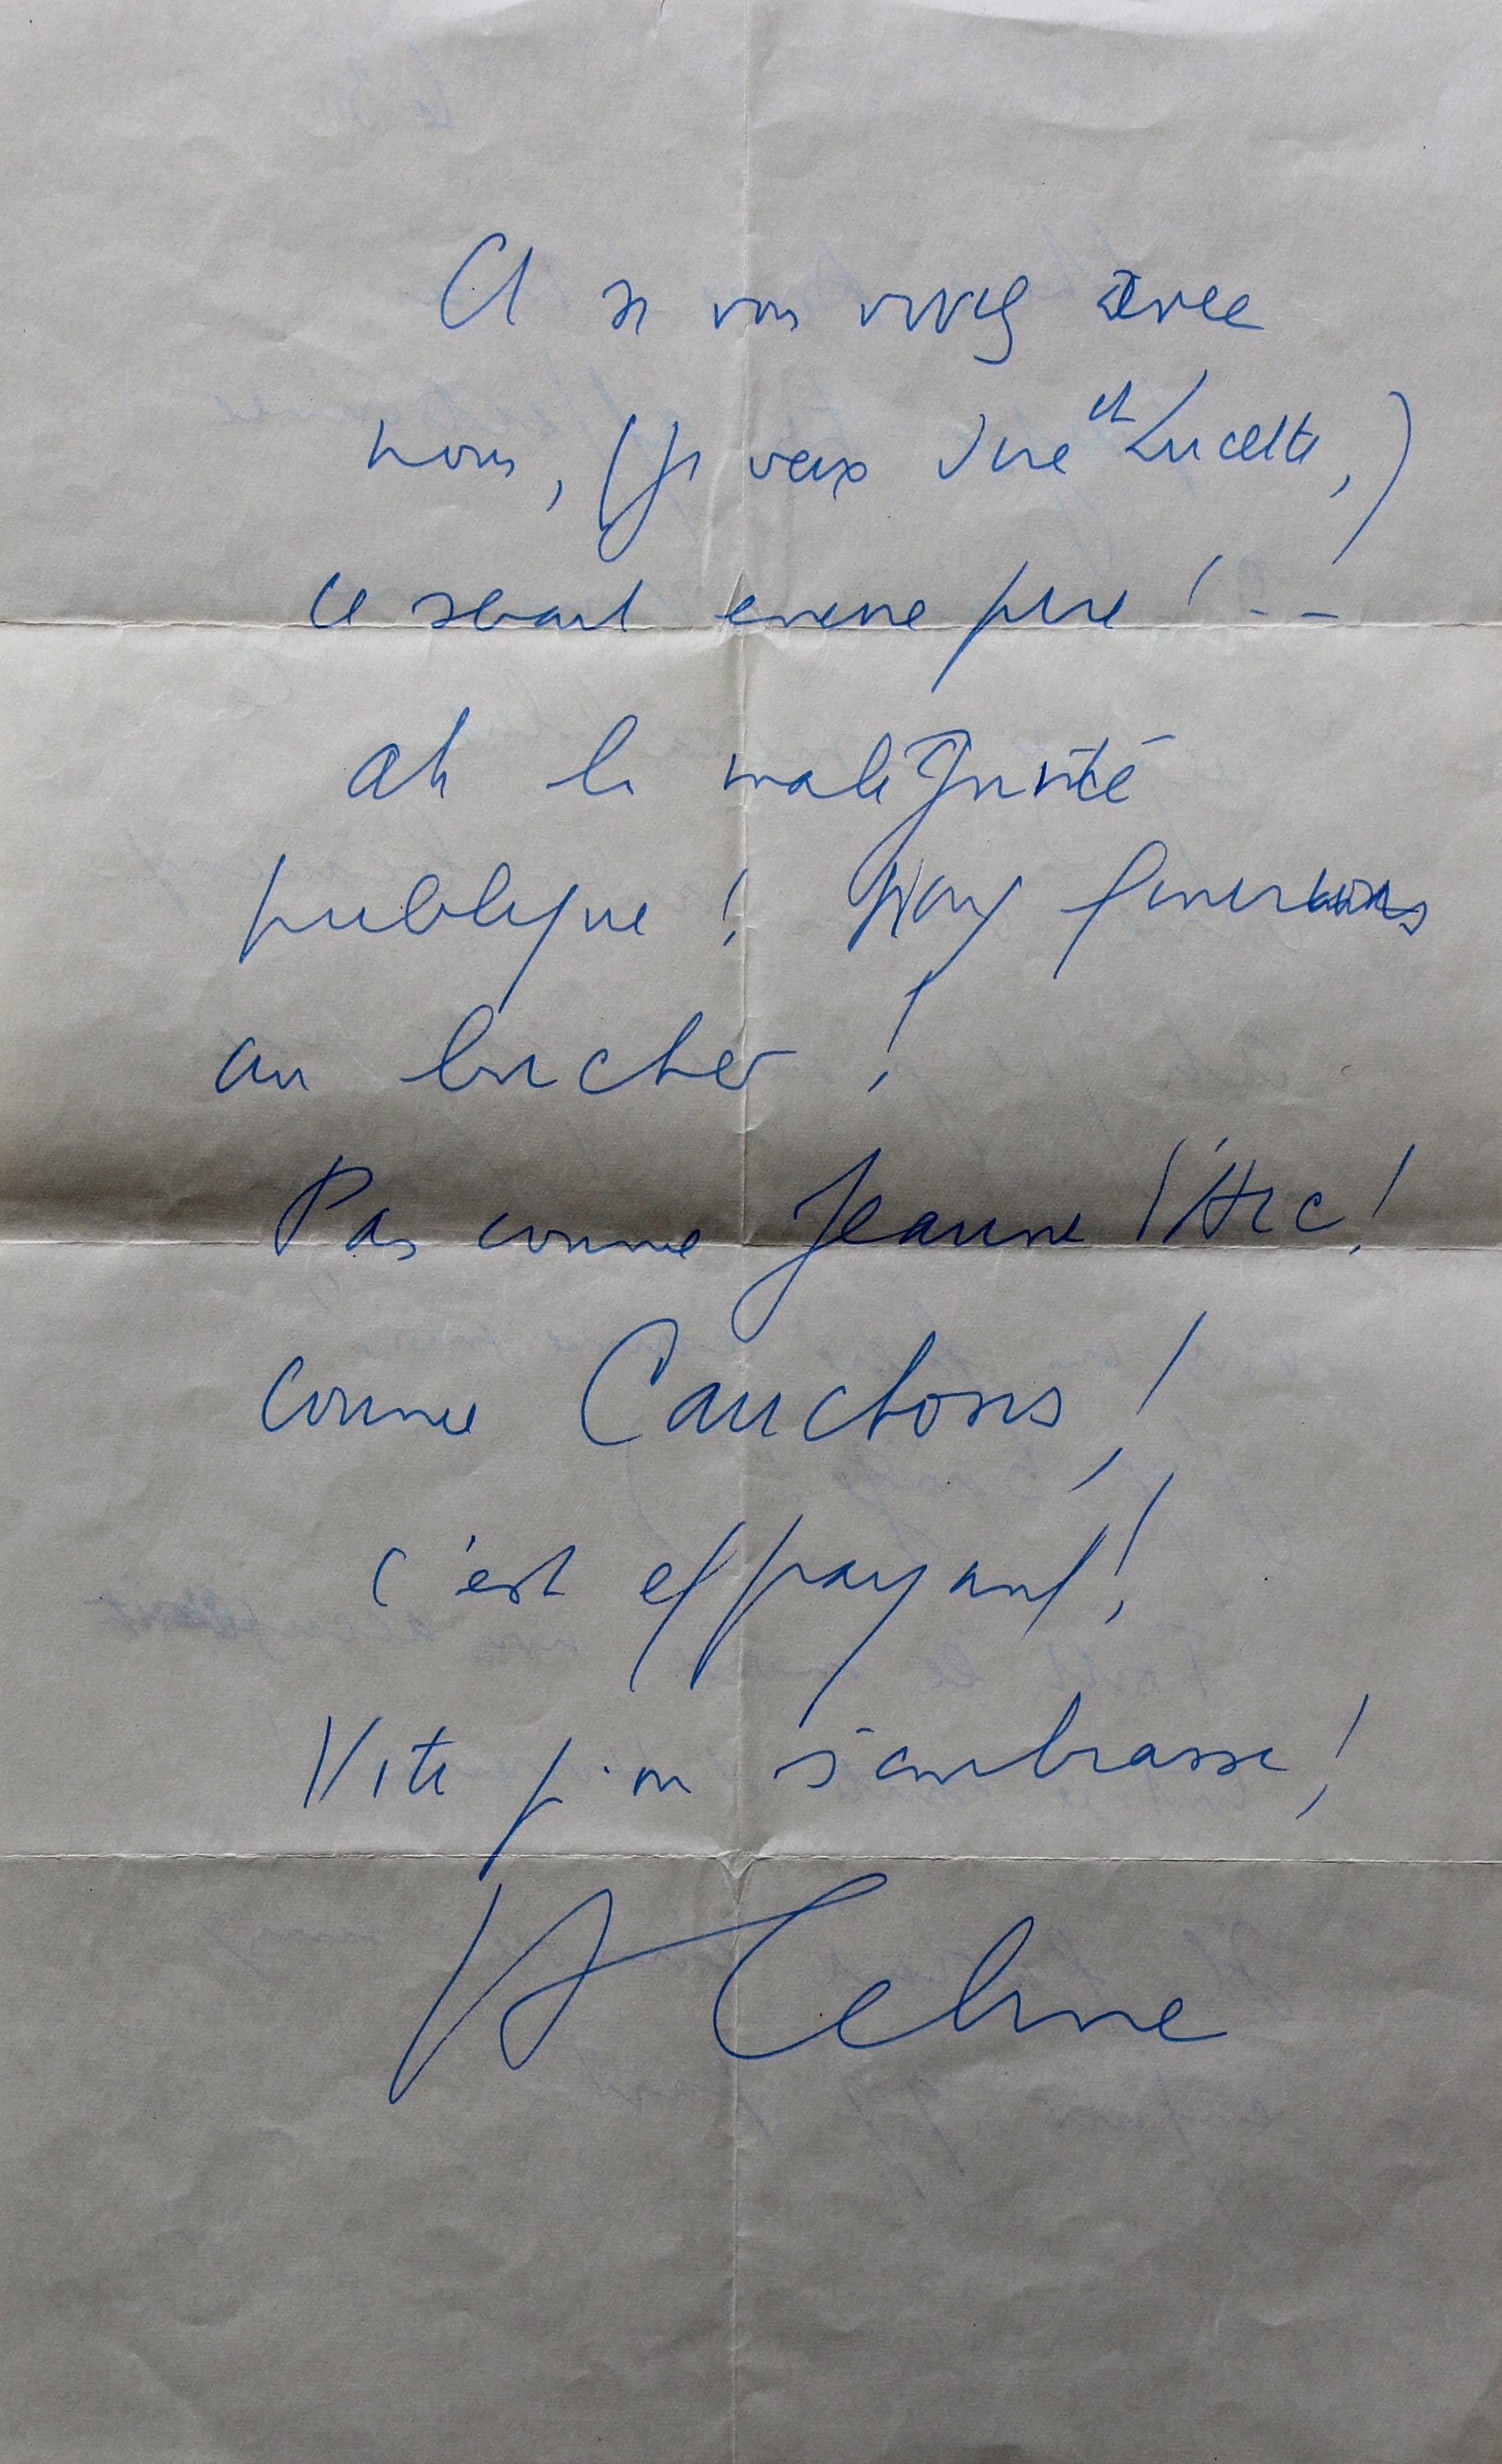 Et si vous vivez avec
nous, (je veux dire et Lucette,)
ce serait encore pire ! --
ah la malignité
publique ! Nous finirons
au bucher !
Pas comme Jeanne d'Arc !
comme Cauchons !
c'est effrayant !
Vite qu'on s'embrasse !
LF Celine